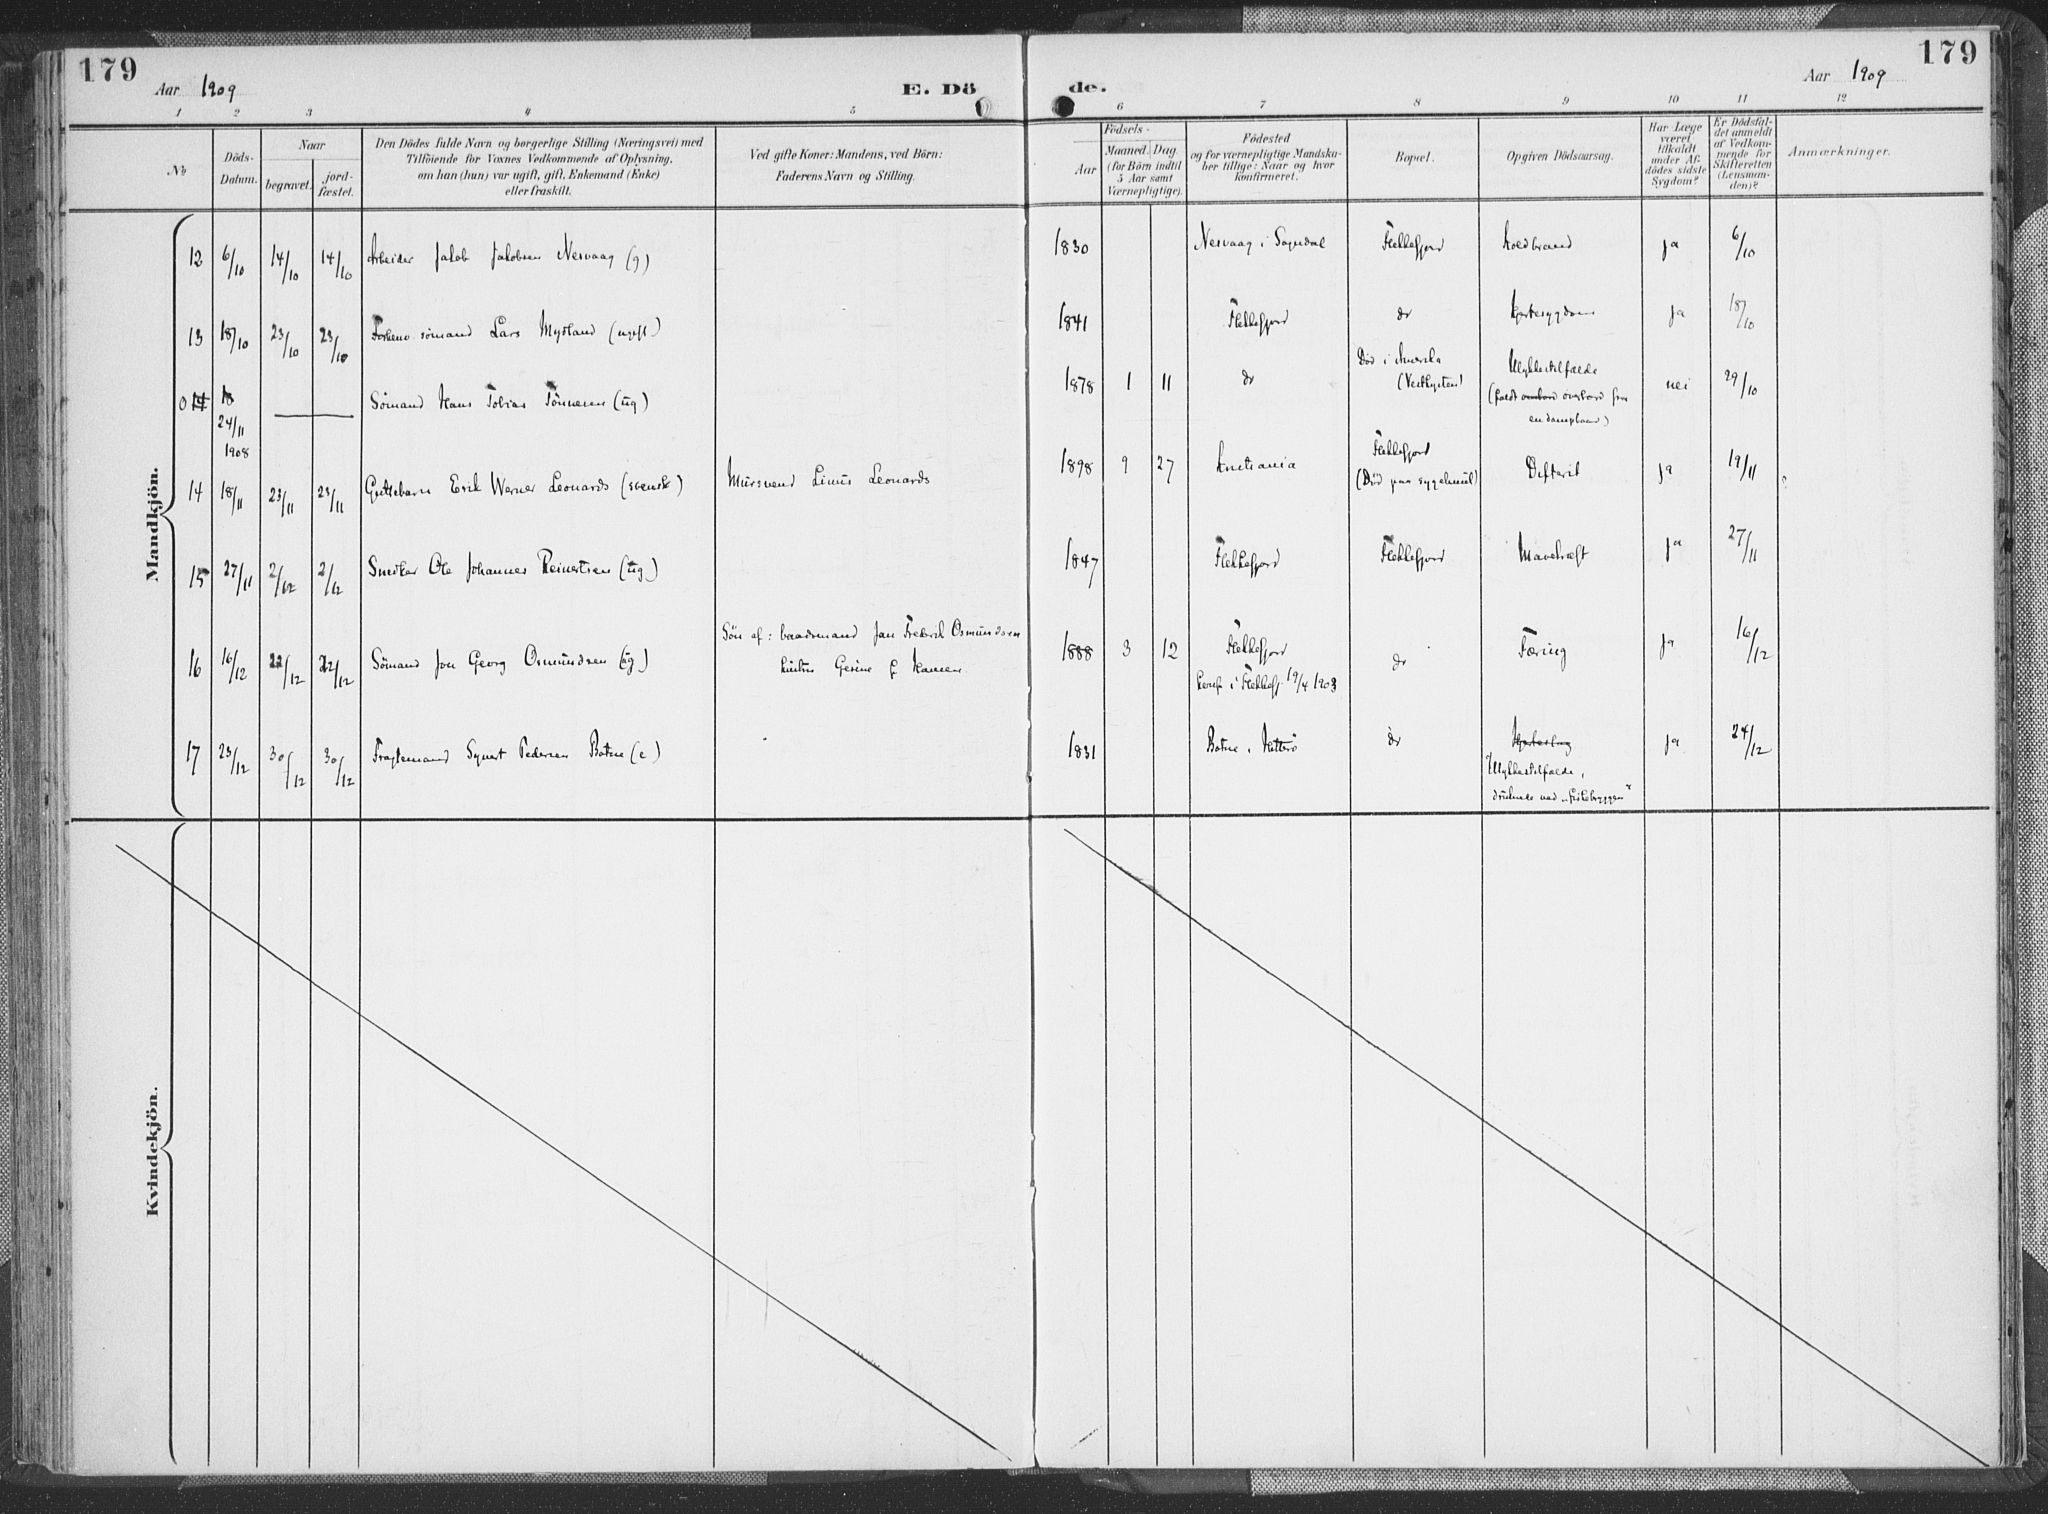 179
Aar 1909
E. Dö
de.
Aar 1909
179
1 2 3 4 5 6 7 8 9 10 11 12
No
Döds-
Datum.
Naar
begravet.
jord-
fæstet.
Den Dödes fulde Navn og borgerlige Stilling (Næringsvei) med
Tilföiende for Voxnes Vedkommende af Oplysning,
om han (hun) var ugift, gift, Enkemand (Enke)
eller fraskilt.
Ved gifte Koner: Mandens, ved Börn:
Faderens Navn og Stilling.
Födsels-
Aar
Maaned. Dag
(for Börn indtil
5 Aar samt
Værnepligtige).
Födested
og for værnepligtige Mandska-
ber tillige: Naar og hvor
konfirmeret.
Bopæl.
Opgiven Dödsaarsag.
Har Læge
været
tilkaldt
under Af-
dödes sidste
Sygdom?
Er Dödsfal-
det anmeldt
af Vedkom-
mende for
Skifteretten
(Lensman-
den)?
Anmærkninger.
Mandkjön.
12 6/10 14/10 14/10 Arbeider Jakob Jakobsen Nesvaag (g) 1830 Nesvaag i Sogndal Flekkefjord Koldbrand ja 6/10
13 18/10 23/10 23/10 sömand Lars Mydland (ugift) 1841 Flekkefjord do Hjertesygdom ja 18/10
0 14 18
24/11
1908
Sömand Hans Tobias Tönnesen (ug) 1878 1 11 do
Död i Amerika
(Vestkysten)
Ulykkestilfælde
(faldt ombord overbord fra
en dampbaad)
nei 29/10
14 18/11 23/11 23/11 Guttebarn Erik Werner Leonards (svensk) Mursvend Linus Leonards 1898 9 27 Kristiania
Flekkefjord
(Död paa sygehuset)
Difterit ja 19/11
15 27/11 2/12 2/12 Snedker Ole Johannes Reinertsen (ug) 1847 Flekkefjord Flekkefjord Mavekræft ja 27/11
16 16/12 22/12 22/12 Sömand Jon Georg Osmundsen (ug)
Sön af: baadsmand Jan Fredrik Osmundsen
hustru Gesine f. Hansen
1888 3 12
Flekkefjord
konf i Flekkefj. 19/4 1903
do Tæring ja 16/12
17 23/12 30/12 30/12 Fragtemand Syvert Pedersen Botne (e) 1831 Botne, Hitterö do
Hjerteslag
"Ulykkestilfælde,
druknede ved "Fiskebryggen"
ja 24/12
Kvindekjön.